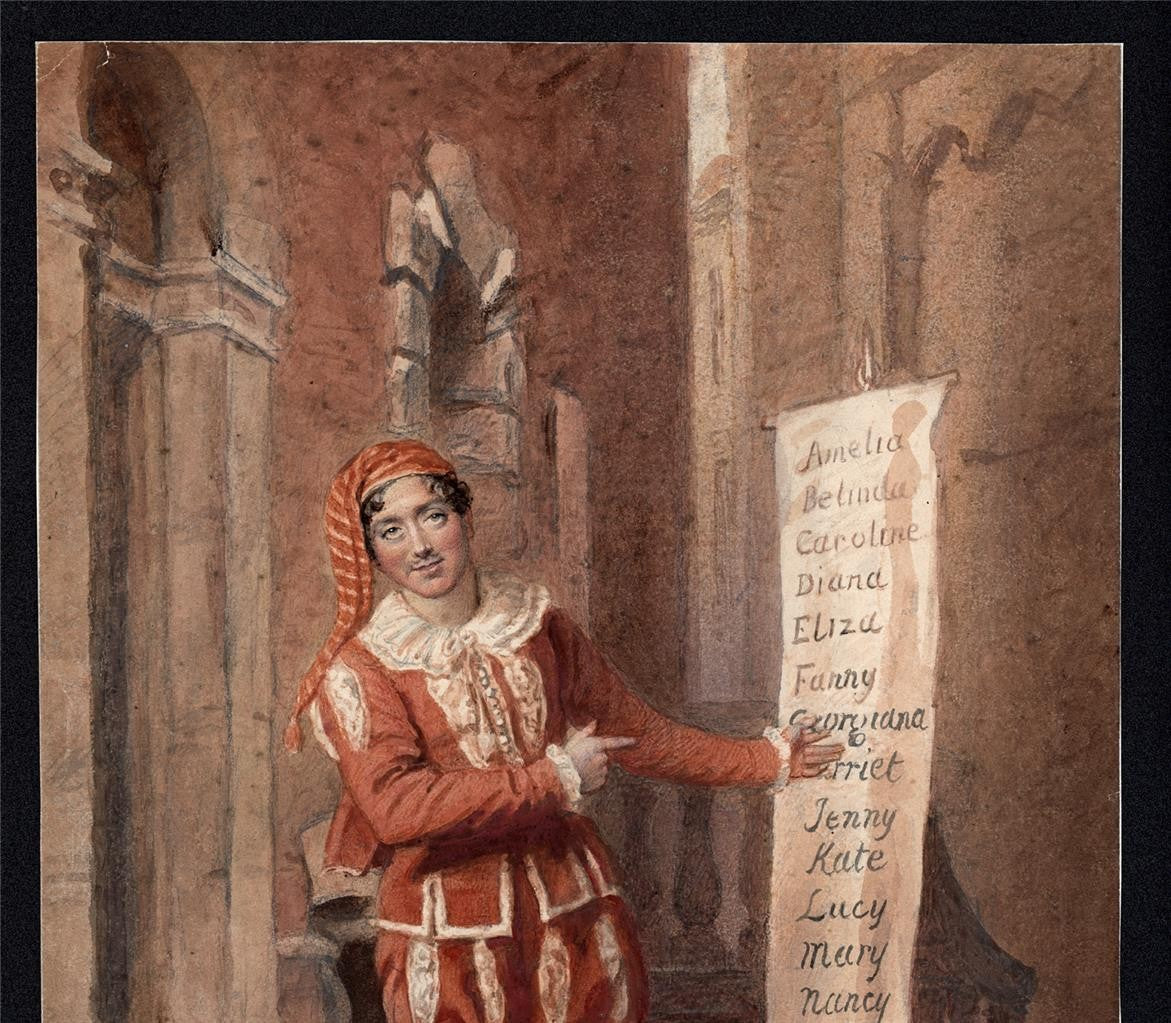 Amelia
Belinda
Caroline
Diana
Eliza
Fanny
Georgiana
Jenny
Kate
Lucy
Mary
Nancy